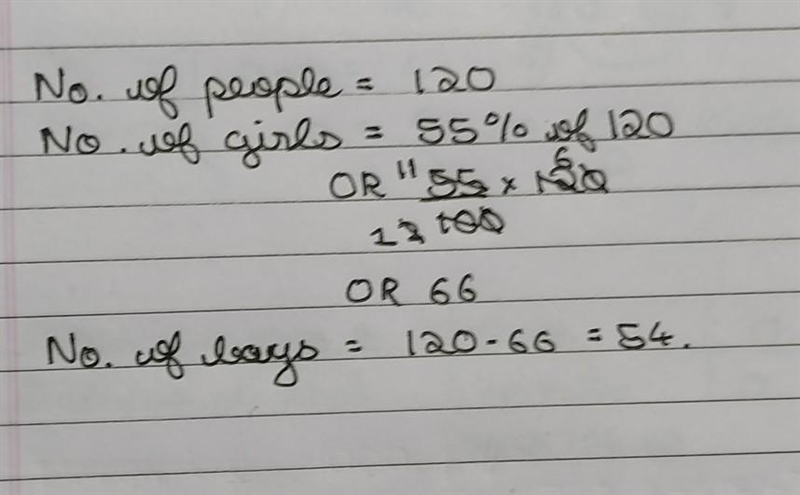 No. of people = 120
No. of girls = 55% of 120
6
OR 11 55 x 120
100
OR 66
No. of boys = 120-66 = 54.